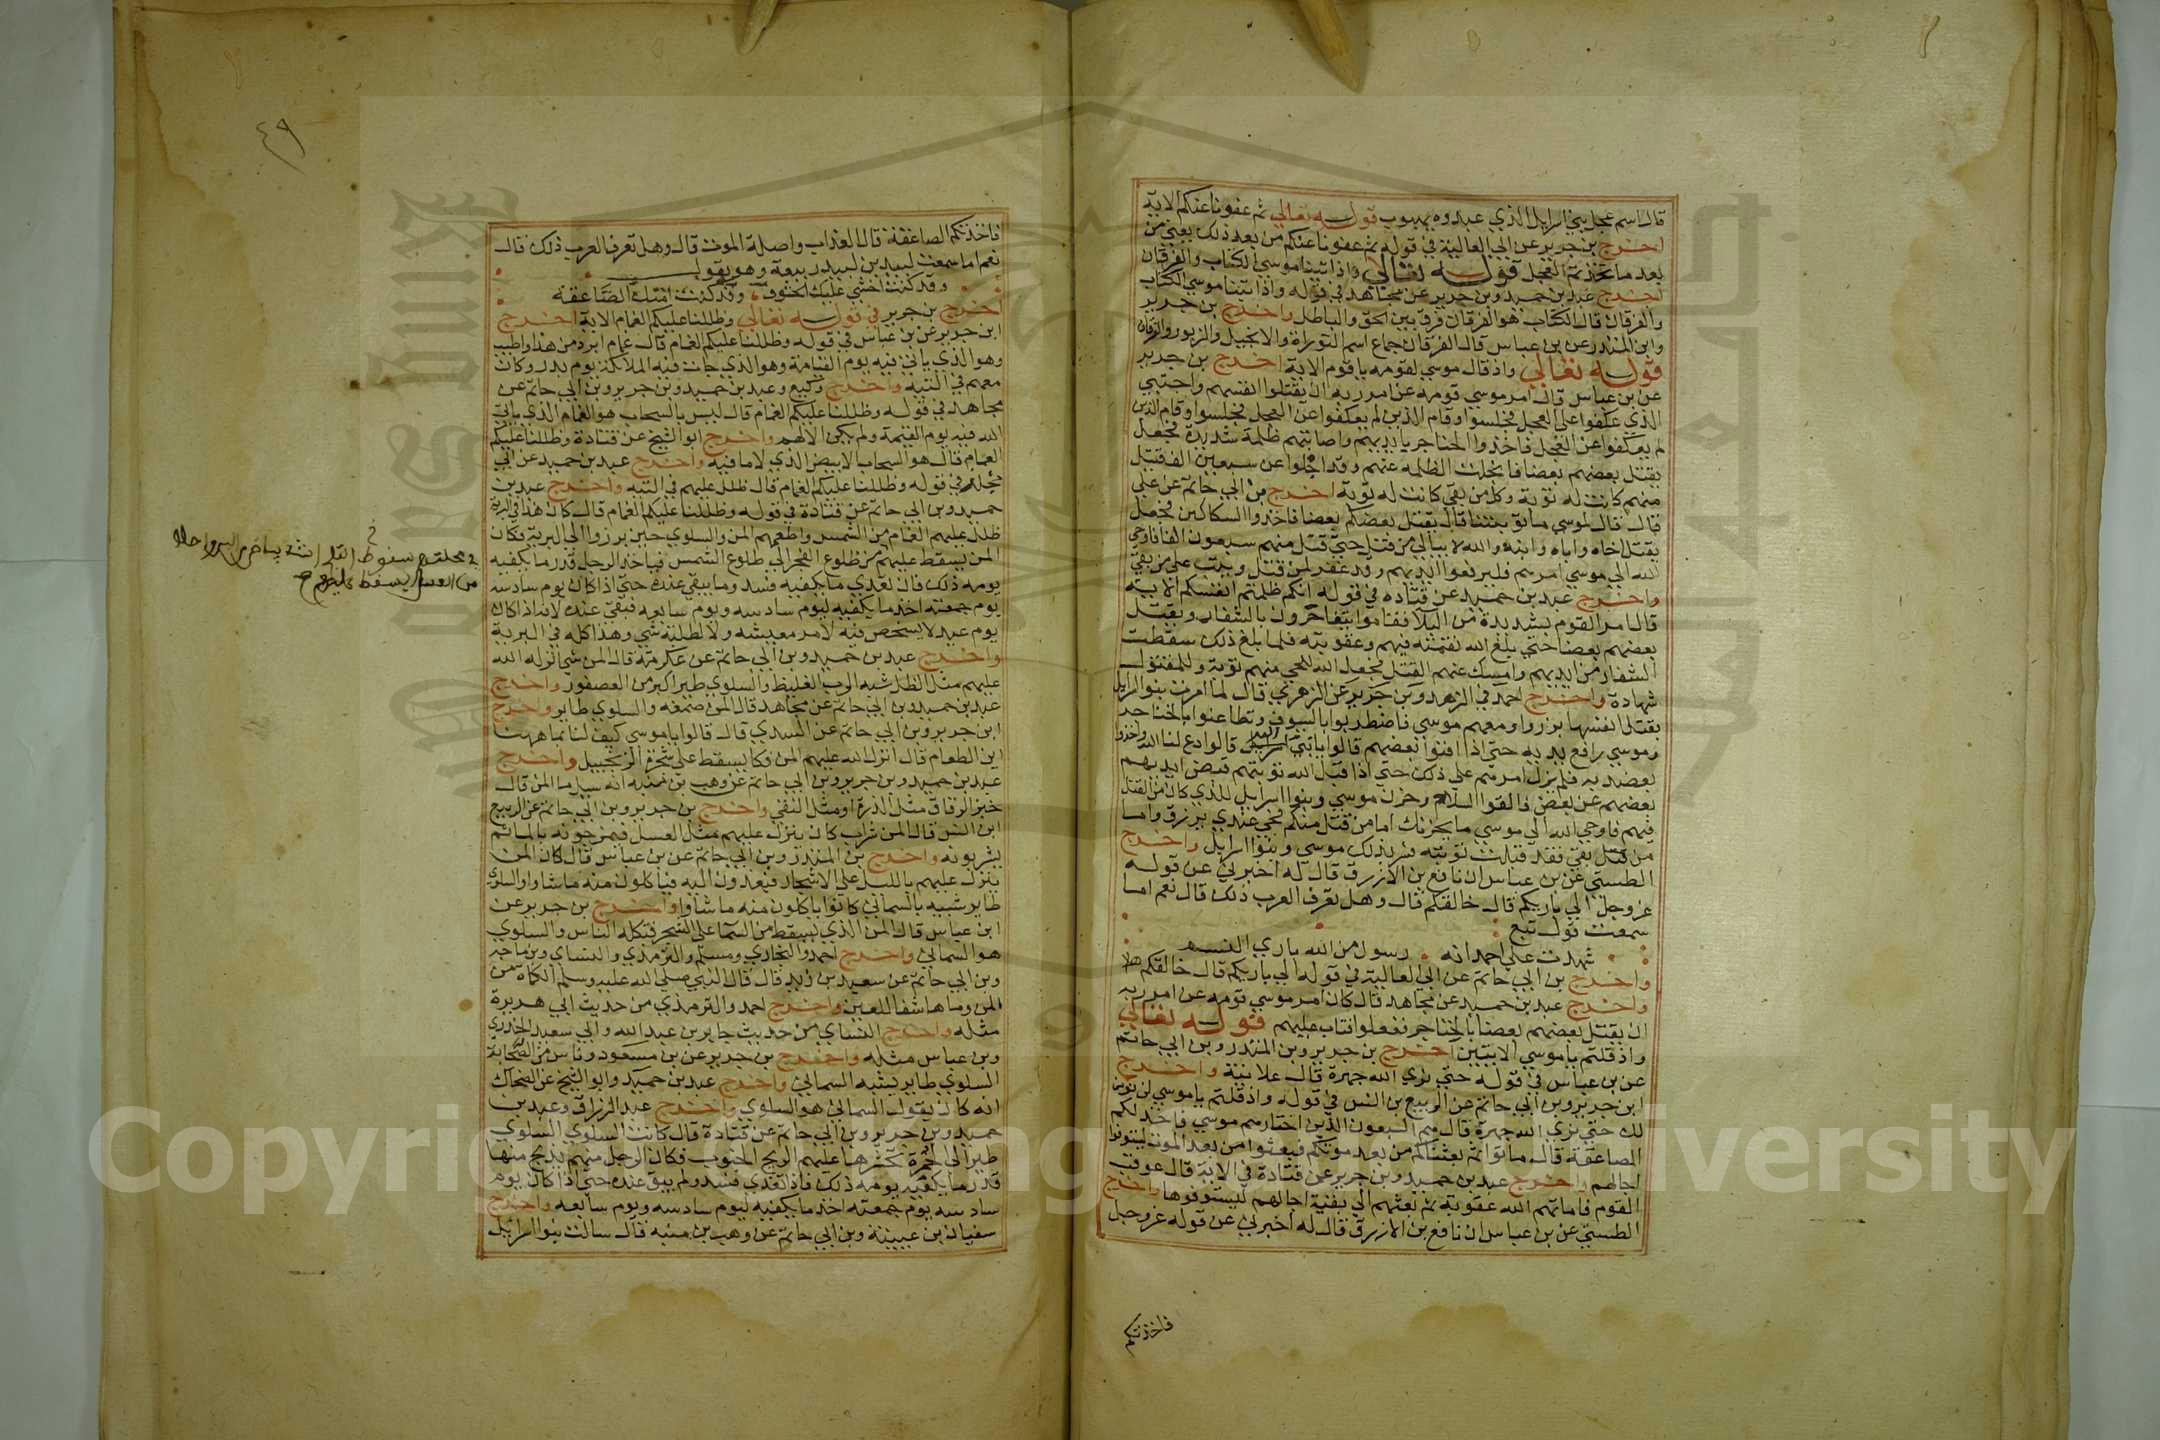 قال اسم عجل بني اسرايل الذي عبدوه يهبوب قوله تعالي ثم عفونا عنكم الاية
اخرج بن جرير عن ابي العالية في قوله ثم عفونا عنكم من بعد ذلك يعني من
بعد ما تخذتم العجل قوله تعالي واذ اتينا موسي الكتاب والفرقان
اخرج عبد بن حميد وبن جرير عن مجاهد في قوله واذ اتينا موسي الكتاب
والفرقان قال الكتاب هو الفرقان فرق بين الحق والباطل واخرج بن جرير
وابن المنذر عن بن عباس قال الفرقان جماع اسم التوراة والانجيل والزبور والفرقان
قوله تعالي واذ قال موسي لقومه ياقوم الاية اخرج بن جرير
عن بن عباس قال امر موسي قومه عن امر ربه ان يقتلوا انفسهم واحتبي
الذي عكفوا علي العجل فجلسوا وقام الذين لم يعكفوا عن العجل فجلسوا وقام الذين
لم يعكفوا عن العجل فاخذوا الخناجر بايديهم واصابتهم ظلمة شديدة فجعل
يقتل بعضهم بعضا فانجلت الظلمة عنهم وقد اجلوا عن سبعين الف قتيل
منهم كانت له توبة وكل من بقي كانت له توبة اخرج بن ابي حاتم عن علي
قال قال لموسي ما توبتنا قال يقتل بعضكم بعضا فاخذوا السكاكين فجعل
يقتل اخاه واباه وابنه والله لا يبالي من قتل حتي قتل منهم سبعون الفا فاوحي
الله الي موسي امرهم فليرفعوا ايديهم وقد غفر لمن قتل وتيب علي من بقي
واخرج عبد بن حميد عن قتاده في قوله انكم ظلمتم انفسكم الاية
قال امر القوم بشديدة من البلا فقاموا يتناحرون بالشفار ويقتل
بعضهم بعضا حتي بلغ الله نقمته فيهم وعقوبته فلما بلغ ذلك سقطت
الشفار من ايديهم وامسك عنهم القتل فجعل الله للحي منهم توبة وللمقتول
شهادة واخرج احمد في الزهد وبن جرير عن الزهري قال لما امرت بنوا اسرايل
بقتل انفسها برزوا ومعهم موسي فاضطربوا بالسيوف وتطاعنوا بالخناجر
وموسي رافع يديه حتي اذا افنوا بعضهم قالوا يا نبي الله قالوا ادع لنا الله واخذوا
بعضديه فلم يزل امرهم علي ذلك حتي اذا قبل الله توبتهم قبض ايديهم
بعضهم عن بعض فالقوا السلاح وحزن موسي وبنوا اسرايل للذي كان من القتل
فيهم فاوحي الله الي موسي ما يحزنك اما من قتل منكم فحي عندي يرزق واما
من بقي فقد قبلت توبته فسر بذلك موسي وبنوا اسرايل واخرج
الطستي عن بن عباس ان نافع بن الازرق قال له اخبرني عن قوله
عز وجل الي باريكم قال خالقكم قال وهل تعرف العرب ذلك قال نعم اما
سمعت قول تبع
شهدت علي احمد انه رسول من الله باري النسم
واخرج بن ابي حاتم عن ابي العالية في قوله الي باريكم قال خالقكم
واخرج عبد بن حميد عن مجاهد قال كان امر موسي قومه عن امر ربه
ان يقتل بعضهم بعضا بالخناجر ففعلوا فتاب عليهم قوله تعالي
واذ قلتم ياموسي الايتين اخرج بن جرير وبن المنذر وبن ابي حاتم
عن بن عباس في قوله حتي نري الله جهرة قال علانية واخرج
ابن جرير وبن ابي حاتم عن الربيع بن انس في قوله واذ قلتم ياموسي لن نومن
لك حتي نري الله جهرة قال هم السبعون الذين اختارهم موسي فاخذتكم
الصاعقة قال ماتوا ثم بعثناكم من بعد موتكم فبعثوا من بعد الموت ليستوفوا
اجالهم واخرج عبد بن حميد وبن جرير عن قتادة في الاية قال عوقب
القوم فاماتهم الله عقوبة ثم بعثهم الي بقية اجالهم ليستوفوها واخرج
الطستي عن بن عباس ان نافع بن الازرق قال له اخبرني عن قوله عز وجل
فاخذتكم
٤٩
فاخذتكم الصاعقة قال العذاب واصله الموت قال وهل تعرف العرب ذلك قال
نعم اما سمعت لبيد بن ربيعة وهو يقول
وقد كنت اخشي عليك الحتوف وقد كنت امنك الصاعقة
اخرج بن جرير في قوله تعالي وظللنا عليكم الغمام الاية اخرج
ابن جرير عن بن عباس في قوله وظللنا عليكم الغمام قال غمام ابرد من هذا واطيب
وهو الذي ياتي فيه يوم القيامة وهو الذي جات فيه الملايكة يوم بدر وكان
معهم في التيه واخرج وكيع وعبد بن حميد وبن جرير وبن ابي حاتم عن
مجاهد في قوله وظللنا عليكم الغمام قال ليس بالسحاب هو الغمام الذي ياتي
الله فيه يوم القيمة ولم يكن الا لهم واخرج ابو الشيخ عن قتادة وظللنا عليكم
الغمام قال هو السحاب الابيض الذي لا ما فيه واخرج عبد بن حميد عن ابي
مجلز في قوله وظللنا عليكم الغمام قال ظلل عليهم في التيه واخرج عبد بن
حميد وبن ابي حاتم عن قتادة في قوله وظللنا عليكم الغمام قال كان هذا في البرية
ظلل عليهم الغمام من الشمس واطعمهم المن والسلوي حين برزوا الي البرية فكان
المن يسقط عليهم من طلوع الفجر الي طلوع الشمس فياخذ الرجل قدر ما يكفيه
يومه ذلك فان تعدي ما يكفيه فسد وما يبقي عنده حتي اذا كان يوم سادسه
يوم جمعته اخذ ما يكفيه ليوم سادسه ويوم سابعه فبقي عنده لانه اذا كان
يوم عيد لا يشخص فيه لامر معيشه ولا لطلبة شي وهذا كله في البرية
واخرج عبد بن حميد وبن ابي حاتم عن عكرمة قال المن شي انزله الله
عليهم مثل الطل شبه الرب الغليظ والسلوي طير اكبر من العصفور واخرج
عبد بن حميد وبن ابي حاتم عن مجاهد قال المن صمغه والسلوي طاير واخرج
ابن جرير وبن ابي حاتم عن السدي قال قالوا ياموسي كيف لنا بما ههنا
اين الطعام قال انزل الله عليهم المن فكان يسقط علي شجرة الزنجبيل واخرج
عبد بن حميد وبن جرير وبن ابي حاتم عن وهب بن منبه انه سيل ما المن قال
خبز الرقاق مثل الذرة او مثل النقي واخرج بن جرير وبن ابي حاتم عن الربيع
ابن انس قال المن شراب كان ينزل عليهم مثل العسل فيمزجونه بالما ثم
يشربونه واخرج بن المنذر وبن ابي حاتم عن بن عباس قال كان المن
ينزل عليهم بالليل علي الاشجار فيغدون اليه فياكلون منه ماشاوا والسلوي
طاير شبيه بالسماني كانوا ياكلون منه ما شاوا واخرج بن جرير عن
ابن عباس قال المن الذي يسقط من السما علي الشجر فتاكله الناس والسلوي
هو السماني واخرج احمد والبخاري ومسلم والترمذي والنساي وبن ماجه
وبن ابي حاتم عن سعيد بن زيد قال قال النبي صلي الله عليه وسلم الكماة من
المن وماها شفا للعين واخرج احمد والترمذي من حديث ابي هريرة
مثله واخرج النساي من حديث جابر بن عبد الله وابي سعيد الخدري
وبن عباس مثله واخرج بن جرير عن بن مسعود وناس من الصحابة
السلوي طاير يشبه السماني واخرج عبد بن حميد وابو الشيخ عن الضحاك
انه كان يقول السماني هو السلوي واخرج عبد الرزاق وعبد بن
حميد وبن جرير وبن ابي حاتم عن قتادة قال كانت السلوي السلوي
طيرا الي الحمرة تحشرها عليهم الريح الجنوب فكان الرجل منهم يذبح منها
قدر ما يكفيه يومه ذلك فاذا تعدي فسد ولم يبق عنده حتي اذا كان يوم
سادسه يوم جمعته اخذ ما يكفيه ليوم سادسه ويوم سابعه واخرج
سفيان بن عيينة وبن ابي حاتم عن وهب بن منبه قال سالت بنوا اسرايل
Copyright © King Saud University